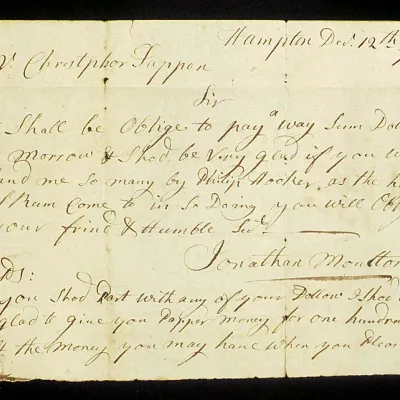 Hampton Decr. 12th
Christphor Tappon
Sir
Shall be Oblige to pay a way Sum Dol
Morrow & Shod. be Very glad if you w
me So many by Philip Hooker, as the h
Rum Come to in So Doing you will Obl
your frind & Humble Servt.
Jonathan Moulton
PS:
you Shod Part with any of your Dollors I Shod
glad to give you Papper money for one hundre
the money you may have when you Pleas